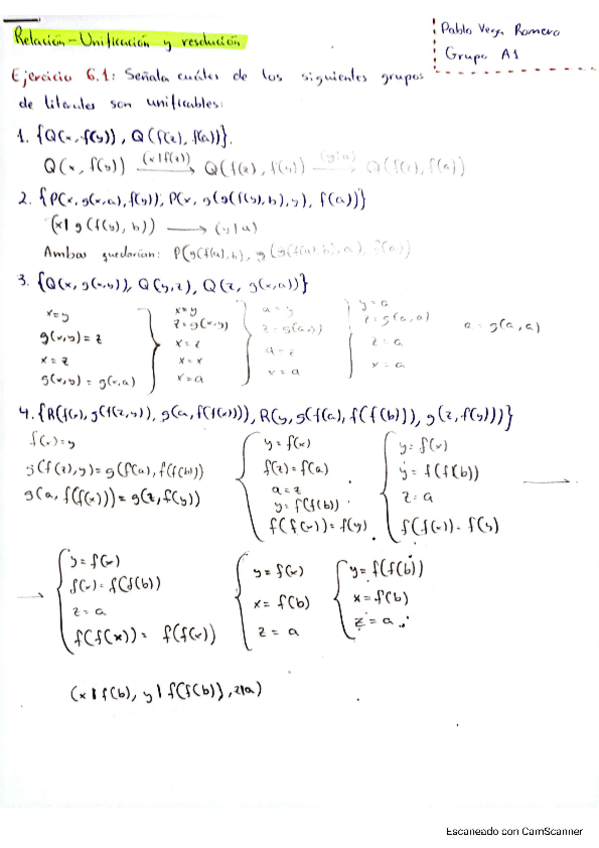 Relación - Unificación y resolución
Pablo Vega Romero
Grupo A1
Ejercicio 6.1: Señala cuáles de los siguientes grupos
de literales son unificables:
1. {Q(x, f(y)), Q(f(z), f(a))}.
Q(x, f(y)) (x|f(z)) → Q(f(z), f(y)) (y|a) → Q(f(z), f(a))
2. {P(x, g(x,a), f(y)), P(x, g(g(f(y),b),y), f(a))}
(x| g(f(y), b)) → (y|a)
Ambas quedarían: P(g(f(a),b), g(g(f(a),b),a), f(a))
3. {Q(x, g(x,y)), Q(y,z), Q(z, g(x,a))}
x=y
g(x,y)=z
x=z
g(x,y)=g(x,a)
x=y
z=g(x,y)
x=z
x=x
x=a
a=y
z=g(a,y)
a=z
x=a
y=a
z=g(a,a)
z=a
x=a
a=g(a,a)
4. {R(f(x), g(f(z,y)), g(a, f(f(x)))), R(y, g(f(a), f(f(b))), g(z, f(y)))}
f(x)=y
g(f(z),y)=g(f(a), f(f(b)))
g(a, f(f(x)))=g(z, f(y))
y=f(x)
f(z)=f(a)
a=z
y=f(f(b))
f(f(x))=f(y)
y=f(x)
y=f(f(b))
z=a
f(f(x))=f(y)
→
→
y=f(x)
f(x)=f(f(b))
z=a
f(f(x))= f(f(x))
y=f(x)
x=f(b)
z=a
y=f(f(b))
x=f(b)
z=a
(x|f(b), y|f(f(b)), z|a)
Escaneado con CamScanner